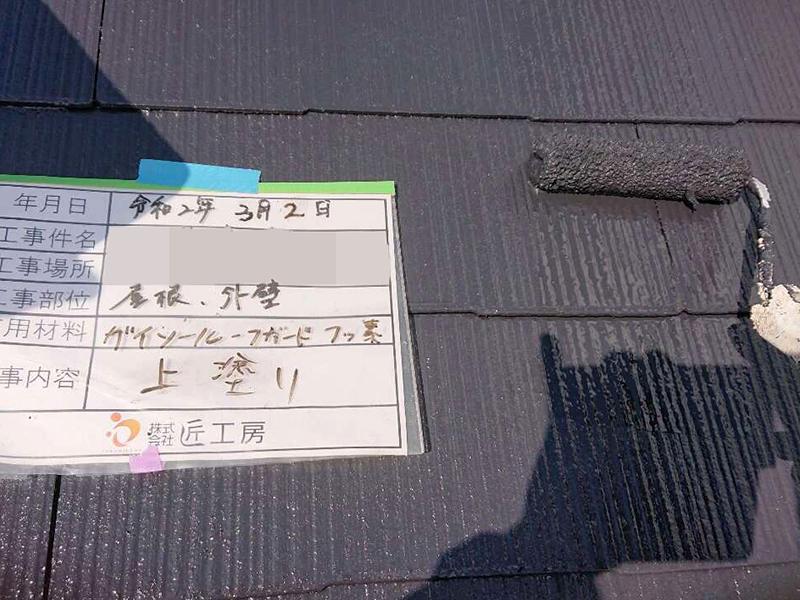 年月日 令和2年 3月2日
工事件名
工事場所
工事部位 屋根、外壁
用材料 ダイソールーフガード フッ素
事内容 上塗り
株式会社 匠工房